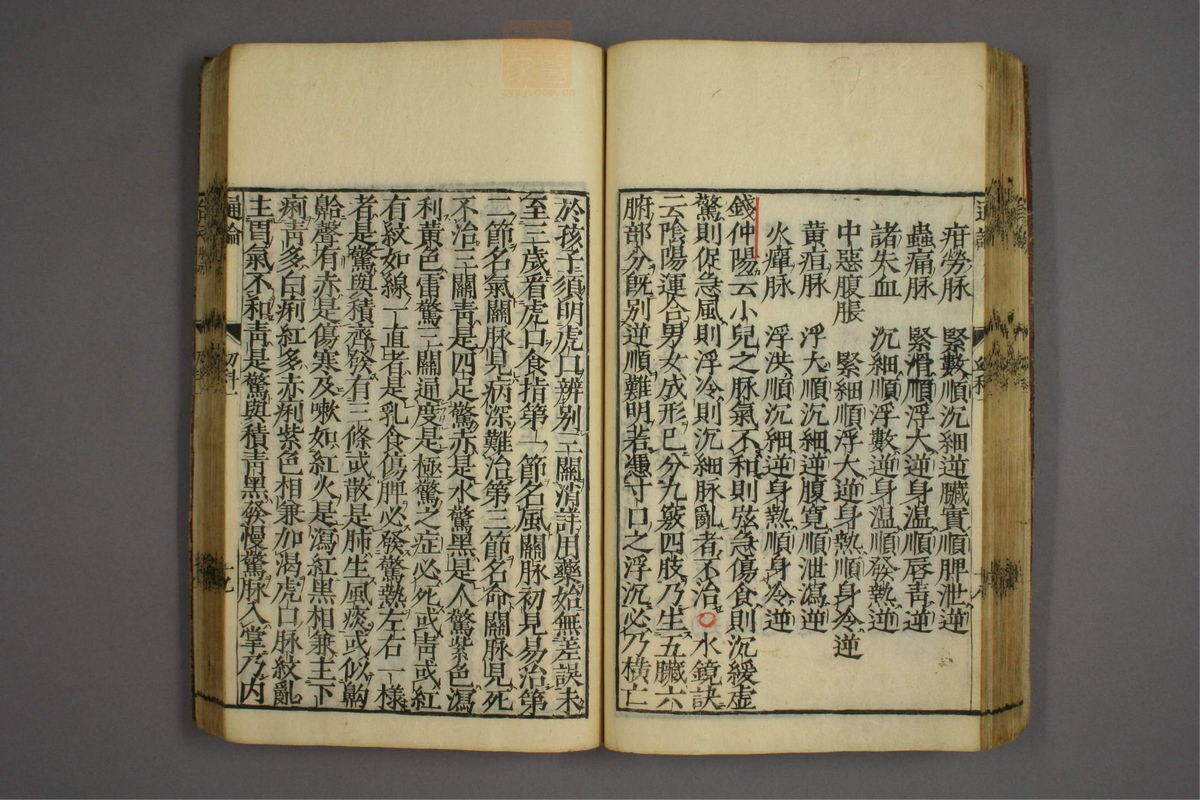 疳勞脉 緊數順沉細逆臟實順脾泄逆
蟲痛脉 緊滑順浮大逆身温順唇青逆
諸失血 沉細順浮數逆身温順發熱逆
中惡腹脹 緊細順浮大逆身熱順身冷逆
黄疸脉 浮大順沉細逆腹寛順泄瀉逆
火癉脉 浮洪順沉細逆身熱順身冷逆
錢仲陽云小兒之脉氣不和則弦急傷食則沉緩虚
驚則促急風則浮冷則沉細脉亂者不治○水鏡訣
云陰陽運合男女成形已分九竅四肢乃生五臟六
腑部分既别逆順難明若憑寸口之浮沉必乃横亡
於孩子須明虎口辨别三關消詳用藥始無差誤未
至三歳看虎口食指第一節名風關脉初見易治第
二節名氣關脉見病深難治第三節名命關脉見死
不治三關青是四足驚赤是水驚黑是人驚紫色瀉
利黄色雷驚三關通度是極驚之症必死或青或紅
有紋如線一直者是乳食傷脾必發驚熱左右一樣
者是驚與積齊發有三條或散是肺生風痰或似齁
𪖙聲有赤是傷寒及嗽如紅火是瀉紅黑相兼主下
痢青多白痢紅多赤痢紫色相兼加渇虎口脉紋亂
主胃氣不和青是驚與積青黑發慢驚脉入掌乃内
通論
幼科
十九